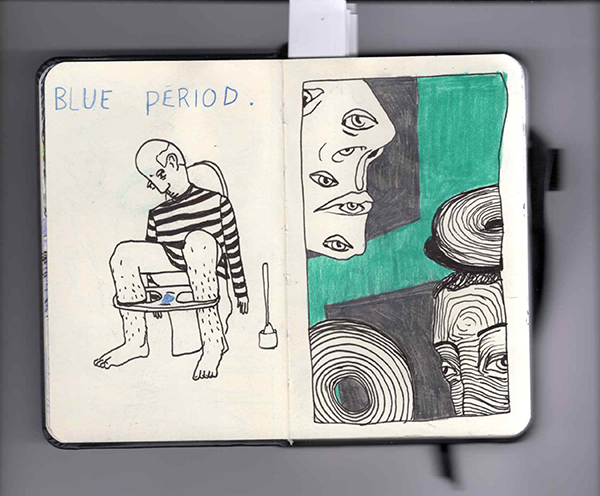 BLUE PERIOD.